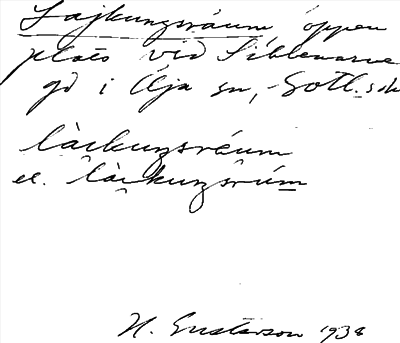 Lajkungsräum, öppen
plats vid Siblenarve
gd i Öja sn, Gotl. s.
làikuŋsräum
el. làikuŋsrúm
H. Gustavson 1938